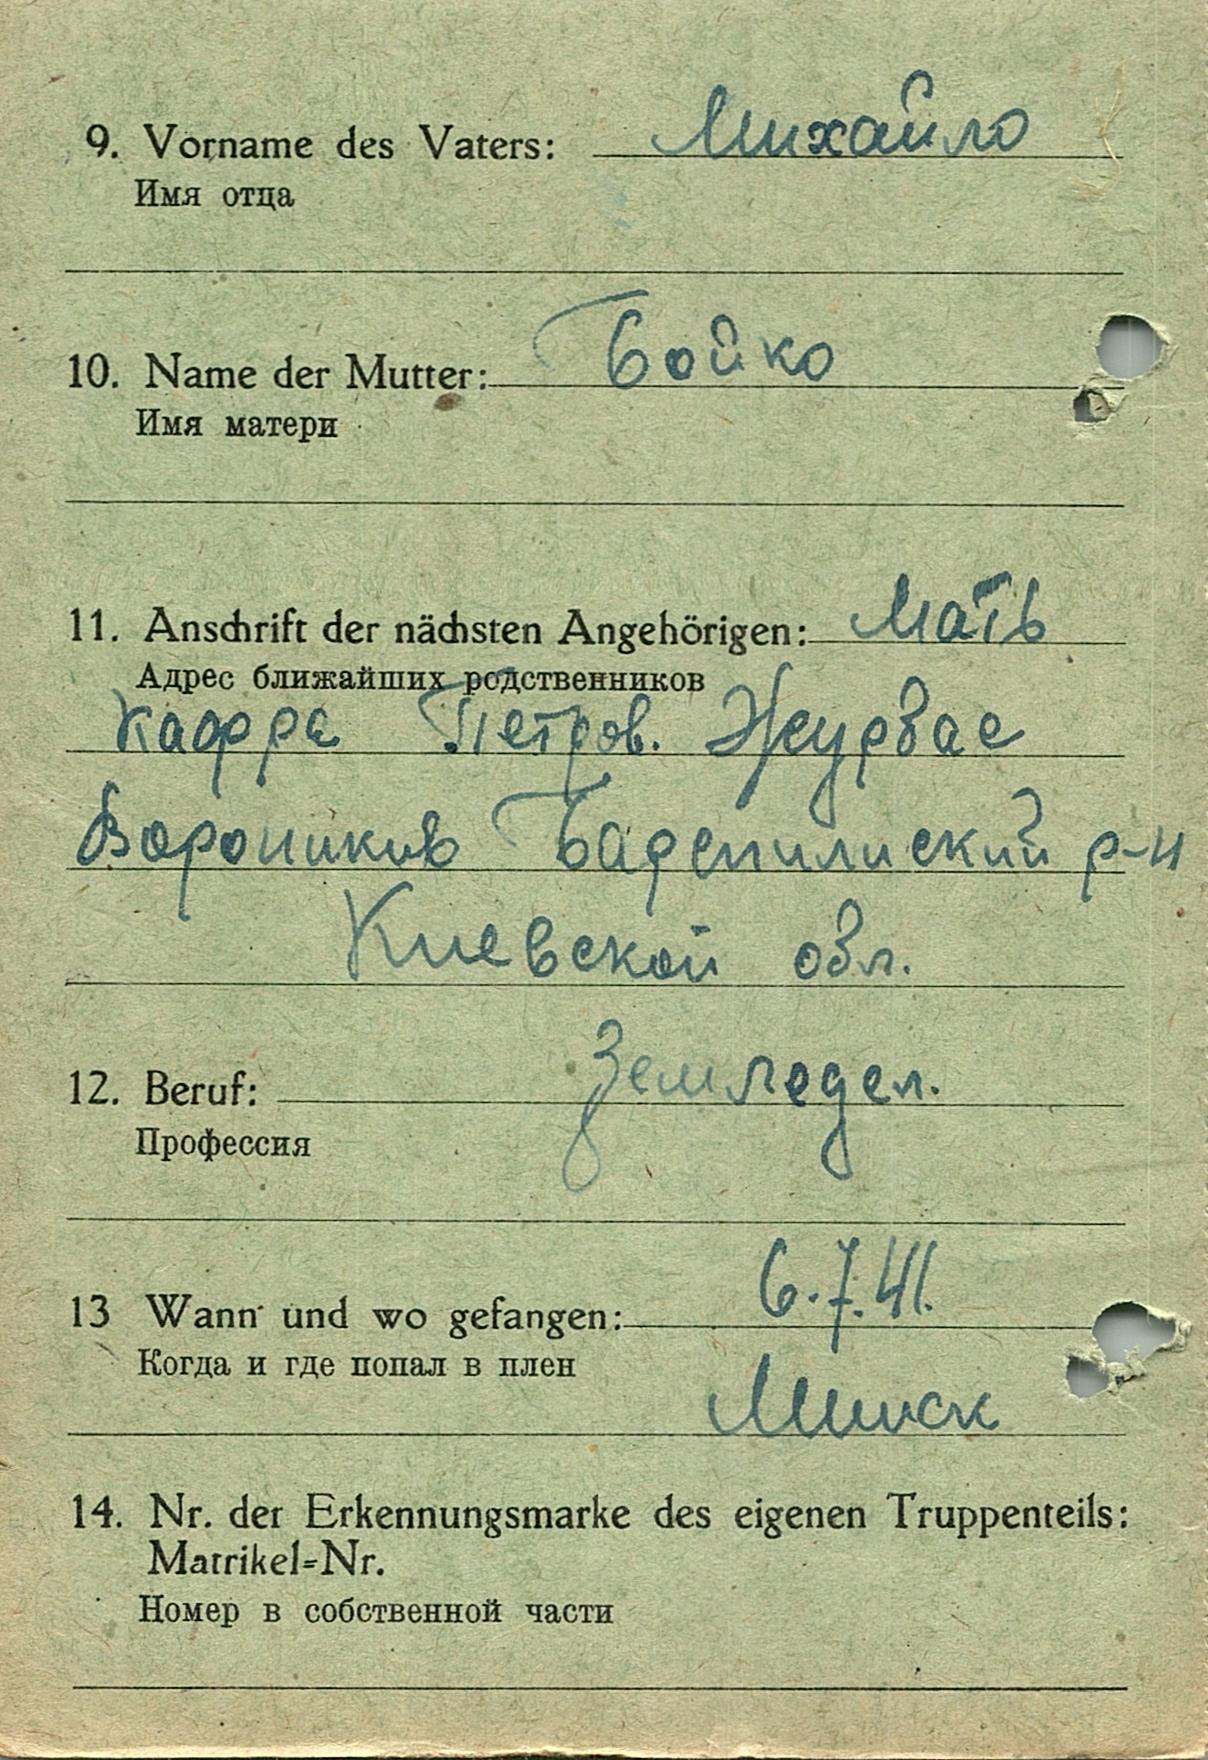 9. Vorname des Vaters: Михайло
Имя отца
10. Name der Mutter: Бойко
Имя матери
11. Anschrift der nächsten Angehörigen: Мать
Адрес ближайших родственников
Петров.
р-н
Киевской обл.
12. Beruf: Земледел.
Профессия
13 Wann und wo gefangen: 6.7.41.
Когда и где попал в плен
Минск
14. Nr. der Erkennungsmarke des eigenen Truppenteils:
Matrikel=Nr.
Номер в собственной части